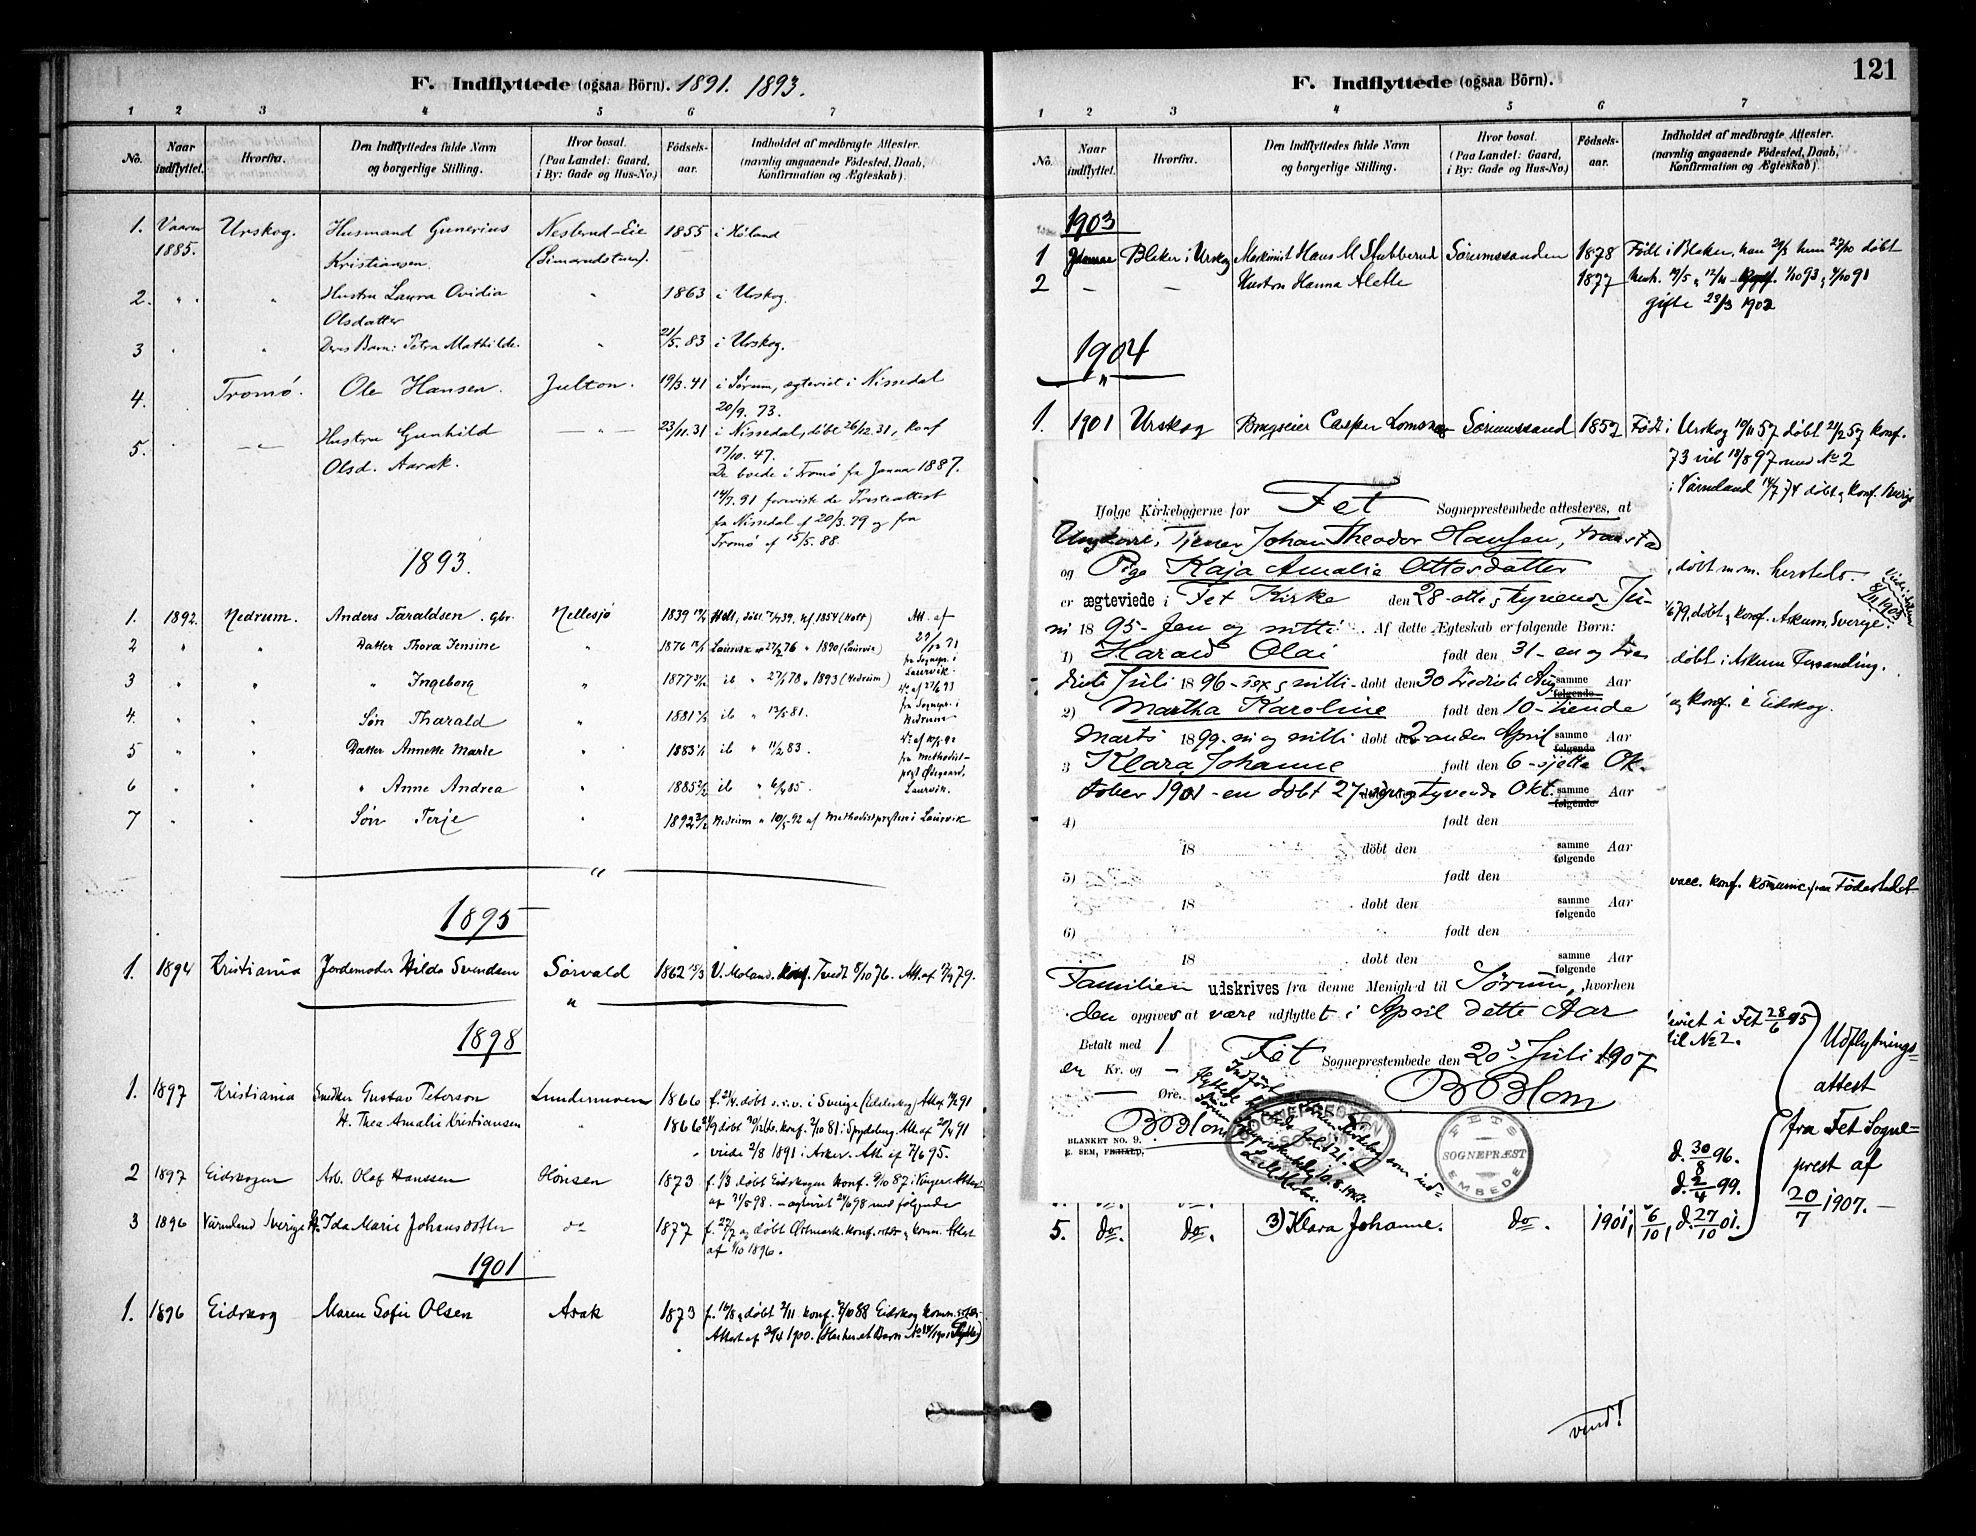 F. Indflyttede (ogsaa Börn). 1891. 1893.
1 2 3 4 5 6 7
No. Naar indflyttet. Hvorfra. Den Indflyttedes fulde Navn og borgerlige Stilling. Hvor bosat. (Paa Landet: Gaard, i By: Gade og Hus-No.) Födsels-aar. Indholdet af medbragte Attester. (navnlig angaaende Födested, Daab, Konfirmation og Ægteskab).
1. Vaaren Urskog. Husmand Gunerius Nesbrud-Eie 1855 i Høland
1885. Kristiansen.
2. " " " Hustru Laura Ovidia " 1863 i Urskog.
Olsdatter
3 " " Deres Barn: Petra Mathilde. " 21/5.83 i Urskog.
4. Tromö. Ole Hansen. Julton. 19/3.41 i Sørum, ægteviet i Nissedal
20/9. 73.
5. — " — Hustru Gunhild — " — 23/11.31 i Nissedal, døbt 26/12.31, konf
Olsd. Aarak. 17/10. 47.
De boede i Tromö fra Januar 1887.
14/7.91 foreviste de Presteattest
fra Nissedal af 20/3.79 og fra
Tromö af 15/5.88.
1893.
1. 1892. Nedrum. Anders Taraldsen. gbr. Mellesjø 1839 Holt, döbt 7/4 39. kf. 1854 (Holt) Att. af
2 " " Datter Thora Jensine " 1876 Laurvik 27/2 76 " 1890 (Laurvik)
3 " " " Ingeborg " 1877 ib " 27/1 78 " 1893 (Nedrum)
fra Sognepr. i
Laurvik
4. " " Søn Tharald " 1881 ib " 13/5 81.
fra Sognepr. i
Nedrum
5 " " Datter Annette Marie " 1883 ib " 11/2 83.
fra Methodist-
prest Ødegaard,
6 " " " Anne Andrea " 1885 ib " 6/4 85. Laurvik.
7 " " Søn Terje " 1892 Nedrum " 10/5-92 af Methodistpresten i Laurvik
"
1895
1. 1894 Kristiania Jordemoder Hilda Svendsen Sørvald 1862 V. Moland. konf. Tvedt 8/10 76. Att. af 79.
"
1898
1. 1897 Kristiania Snedker Gustav Peterson Lundemoen 1866 f. 2/4. døbt s. v. i Sverige Att af 91
H. Thea Amalie Kristiansen " 1866 døbt konf. 2/10 81 i Spydeberg. Att. af 91
viede 2/8 1891 i Asker. Att af 7/6 95.
2 1897 Eidskogen Arb. Olaf Hanssen Hönsen 1873 f. 1/3 döbt Eidskogen konf. 9/10 87 i Vinger. Attest
98. – ægteviet 24/6 98 med følgende
3 1896 Värmland Sverige H. Ida Marie Johansdotter do 1877 f. 27/7 og døbt Östmark. konf. Attest
af 1/10 1896.
1901
1. 1896 Eidskog Maren Sofie Olsen Asak 1873 f. 16/8, døbt 2/11 konf. 7/10 88 Eidskog
Attest af 2/4 1900.
F. Indflyttede (ogsaa Börn). 121
1 2 3 4 5 6 7
No. Naar indflyttet. Hvorfra. Den Indflyttedes fulde Navn og borgerlige Stilling. Hvor bosat. (Paa Landet: Gaard, i By: Gade og Hus-No.) Födsels-aar. Indholdet af medbragte Attester. (navnlig angaaende Födested, Daab, Konfirmation og Ægteskab).
1903
1 Blaker i Urskog Maskinist Hans M. Stubberud Sørumssanden 1878 Født i Blaker, han 24/3 hun 27/10 døbt
2 — — Hustru Hanna Alette 1877 1/10 93, 4/10 91
gifte 23/3 1902
1904
"
1. 1901 Urskog Brugseier Casper Sørumssand 1857 Født i Urskog 19/11 57 døbt 21/2 57 konf.
73 viet 18/8 97 med No 2
i Värmland 14/7 74 døbt, konf. Sverige
Ifølge Kirkebøgerne for Fet Sogneprestembede attesteres, at
Ungkarl, Tjener Johan Theodor Hansen,
og Pige Kaja Amalie Ottosdatter
er ægteviede i Fet Kirke den 28-otte og tyvende Ju-
ni 1895 - fem og nitti. Af dette Ægteskab er følgende Børn:
1) Harald Olai født den 31 - en og tre
divte Juli 1896 - sex og nitti - døbt den 30 tredivte Aug. samme følgende Aar
2) Martha Karoline født den 10 - tiende
Marts 1899 - ni og nitti døbt den 2 anden April samme følgende Aar
3 Klara Johanne født den 6 - sjette Ok-
tober 1901 - en døbt 27 - syv og tyvende Okt. samme følgende Aar
4) født den
18 döbt den samme følgende Aar
5) født den
18 døbt den samme følgende Aar
6) født den
18 døbt den samme følgende Aar
Familien udskrives fra denne Menighed til Sørum, hvorhen
den opgives at være udflyttet i April dette Aar
Betalt med 1
en Kr. og —
— Øre.
Fet Sogneprestembede den 20de Juli 1907
B Blom
B Blom
BLANKET NO. 9.
E. SEM, FR.HALD.
FETS SOGNEPRÆST EMBEDE
, døbt m.m. herstels.
679, døbt, konf. Askum, Sverige.
døbt i Askum Forsamling.
og konf. i Eidskog.
vacc. konf. komunic. fra Fødestedet
viet i Fet 28/6 95
til No 2.
Udflytnings-
attest
fra Fet Sogne-
prest af
20/7 1907. —
d. 30/8 96.
d. 2/4 - 99.
5. do. do. 3) Klara Johanne. do. 1901, 6/10, d. 27/10 01.
vend!